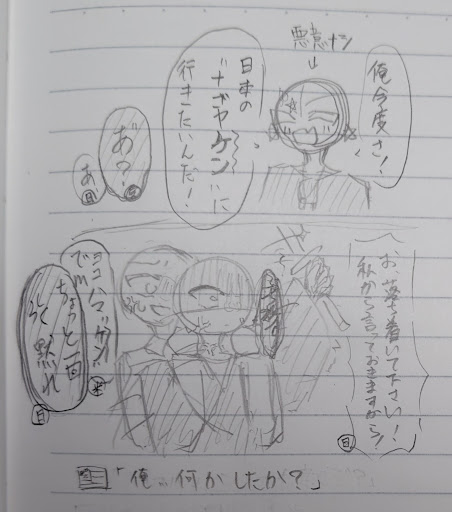 悪意ナシ
↓
俺今度さ!
日本の
"ナゴヤケン"に
行きたいんだ!
あ"?
あ
日
お、落ち着いて下さい!
私から言っておきますから!
日
"ヨコハマッケン"
でm
米
ちょっと一回
黙れ
日
「俺…何かしたか?」